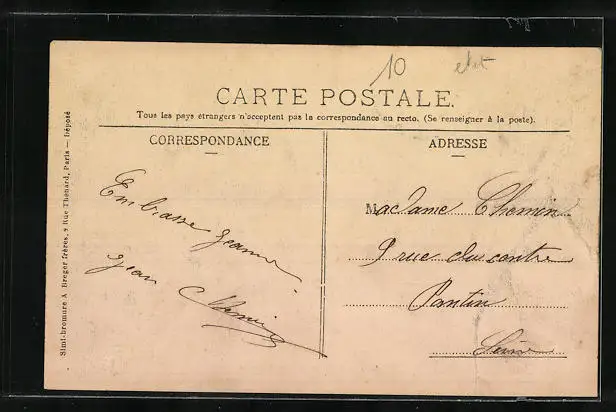 10
CARTE POSTALE.
Tous les pays étrangers n'acceptent pas la correspondance au recto. (Se renseigner à la poste).
CORRESPONDANCE
ADRESSE
Embrasse Jeanne
Jean Chemin
Madame Chemin
9 rue du centre
Pantin
Seine
Simt-bromure A. Breger frères, 9 Rue Thénard, Paris — Déposé